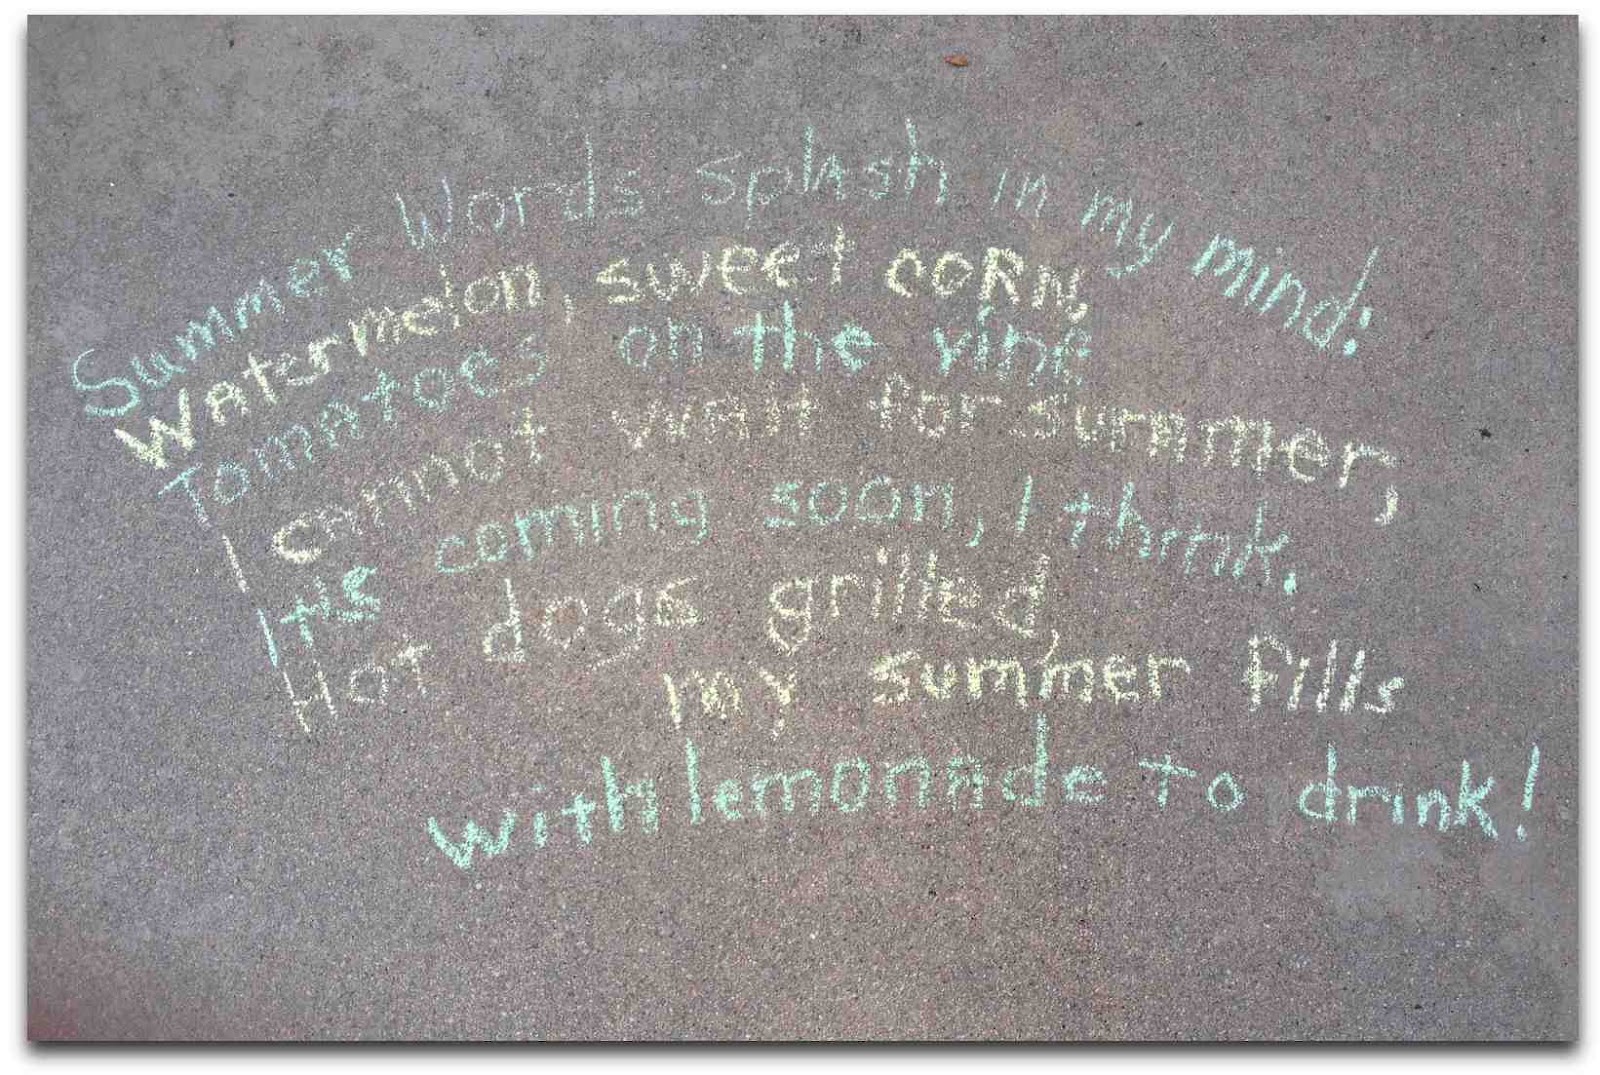 Summer Words splash in my mind:
Watermelon, sweet corn,
Tomatoes on the vine
I cannot wait for summer,
Its coming soon, I think.
Hot dogs grilled,
my summer fills
with lemonade to drink!